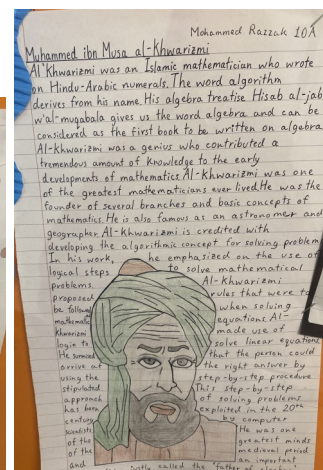 Mohammed Razzak 10A
Muhammed ibn Musa al-Khwarizmi
Al'Khwarizmi was an Islamic mathematician who wrote
on Hindu-Arabic numerals. The word algorithm
derives from his name. His algebra treatise Hisab al-jab
w'al-muqabala gives us the word algebra and can be
considered as the first book to be written on algebra
Al-khwarizmi was a genius who contributed a
tremendous amount of knowledge to the early
developments of mathematics. Al-Khwarizmi was one
of the greatest mathematicians ever lived. He was the
founder of several branches and basic concepts of
mathematics. He is also famous as an astronomer and
geographer. Al-Khwarizmi is credited with
developing the algorithmic concept for solving problem
In his work, he emphasized on the use of
logical steps to solve mathematical
problems. Al-Khwarizmi
proposed rules that were to
be followed when solving
mathematic equations. Al-
Khwarizmi made use of
logic to solve linear equations
He summed that the person could
arrive at the right answer by
using the step-by-step procedure
stipulated. This step-by-step
approach of solving problems
has been exploited in the 20th
century by computer
scientists He was one
of the greatest minds
of the medieval period
and an important
called the father of